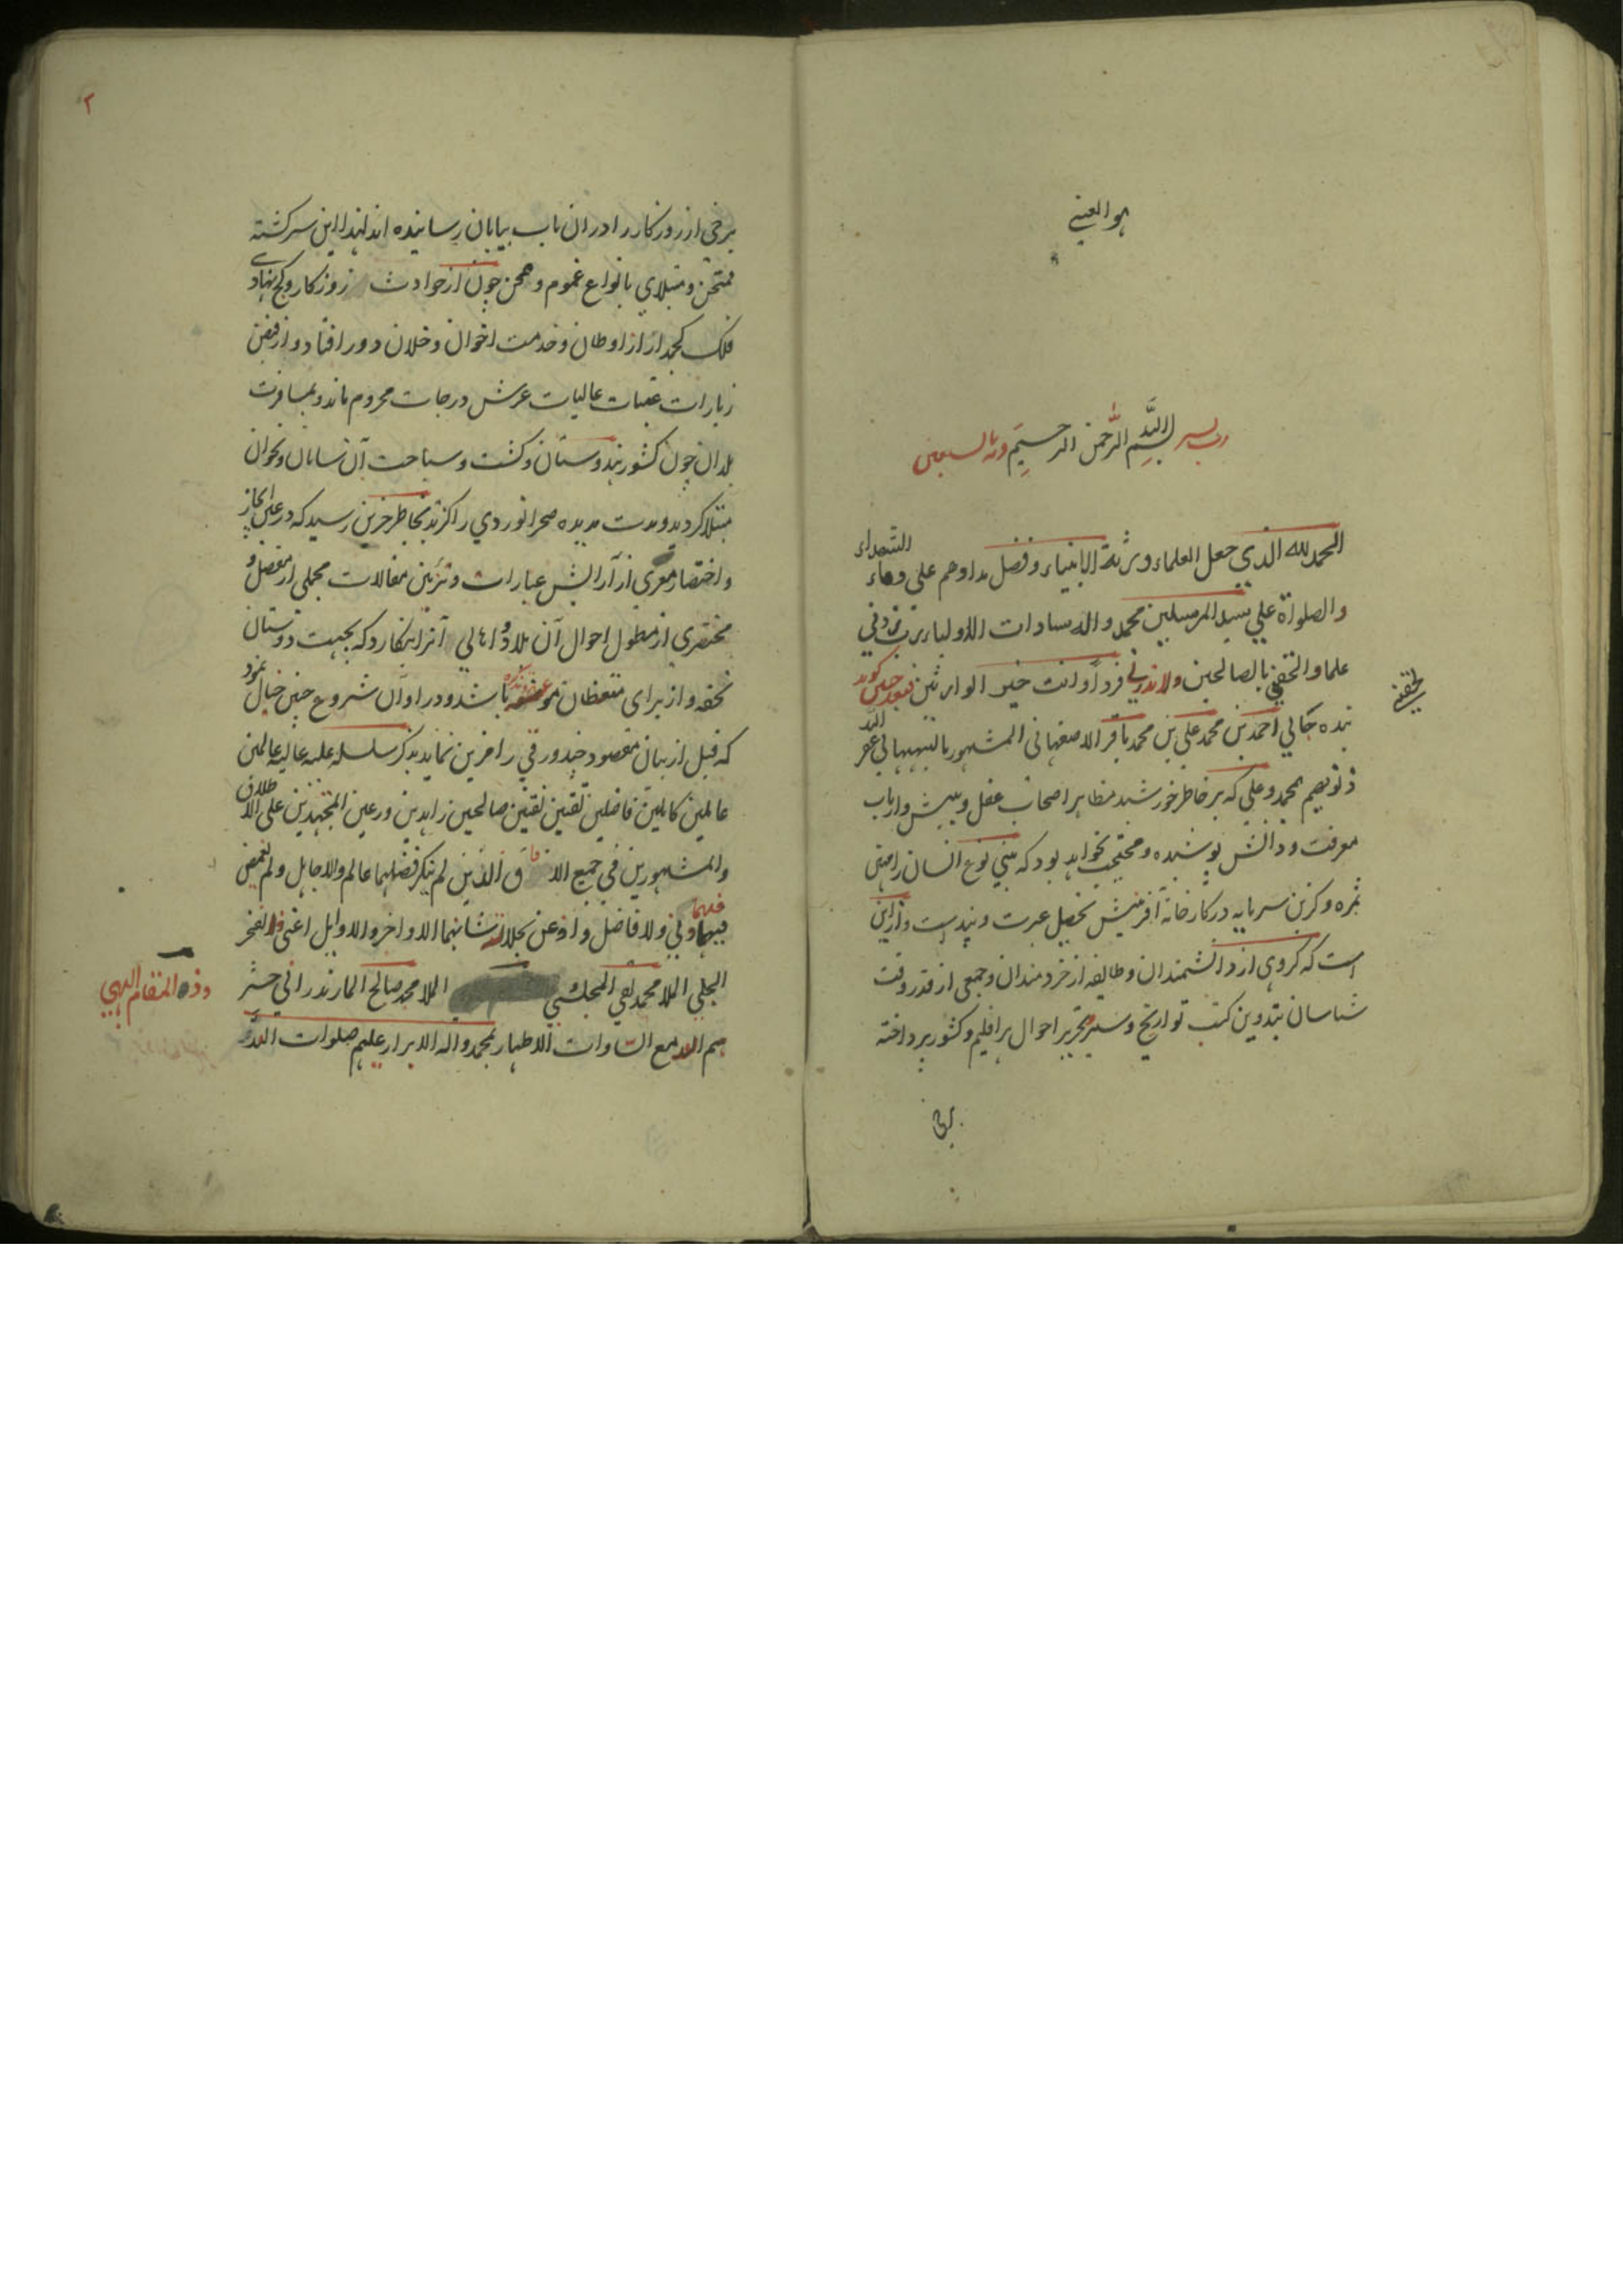 هو المعین
رب یسر بسم الله الرحمن الرحیم وبه نستعین
الحمد لله الذی جعل العلماء ورثة الانبیاء وفضل مدادهم علی دماء الشهداء
والصلواة علی سید المرسلین محمد واله سادات الاولیاء رب زدنی
علما والحقنی بالصالحین ولا تذرنی فردا وانت خیر الوارثین فبعد چنین کوید
الحقنی
بنده جانی احمد بن محمد علی بن محمد باقر الاصفهانی المشهور بالبهبهانی غفر الله
ذنوبهم بمحمد وعلی که بر خاطر خورشید مظاهر اصحاب عقل و بینش وارباب
معرفت ودانش پوشیده ومحتجب نخواهد بود که بنی نوع انسان را مهین
ثمره وکزین سرمایه در کارخانه آفرینش تحصیل عبرت وپند است وازاین
است که کروهی از دانشمندان وطایفه از خردمندان وجمعی از قدر وقت
شناسان بتدوین کتب تواریخ وسیر وتحریر احوال هر اقلیم وکشور پرداخته
برخی
۲
برخی از روزکار را در ان باب بپایان رسانیده اند لهذا این سرکشته
ممتحن ومبتلای بانواع غموم ومحن چون از حوادث روزکار وکج نهادی
فلک کجمدار از اوطان وخدمت اخوان وخلان دور افتاد واز فیض
زیارات عتبات عالیات عرش درجات محروم ماند وبمسافرت
بلدان چون کشور هندوستان وکشت وسیاحت آن سامان ونحوان
مبتلا کردید ومدت مدیده صحرا نوردی را کزید بخاطر حزین رسید که در عین ایجاز
واختصار معری از آرایش عبارات وتزیین مقالات مجملی از مفصل و
مختصری از مطول احوال آن بلاد واهالی آنرا بنکارد که بجهت دوستان
تحفه واز برای متعظان موعظه وتذکره باشد ودر اوان شروع چنین خیال نمود
که قبل از بیان مقصود چند ورقی را مزین نماید بذکر سلسله علیه عالیه عالمین
عاملین کاملین فاضلین تقیین نقیین صالحین زاهدین ورعین المجتهدین علی الاطلاق
والمشهورین فی جمیع الافاق الذین لم ینکر فضلهما عالم ولا جاهل ولم یغمض
فیهما دنی ولا فاضل واذعن بجلالة شانهما الاواخر والاوایل اعنی الفخر
الجلی الملا محمد تقی المجلسی الملا محمد صالح المازندرانی حشر
وذو المقام البهی
هم الله مع السادات الاطهار بمحمد واله الابرار علیهم صلوات الله